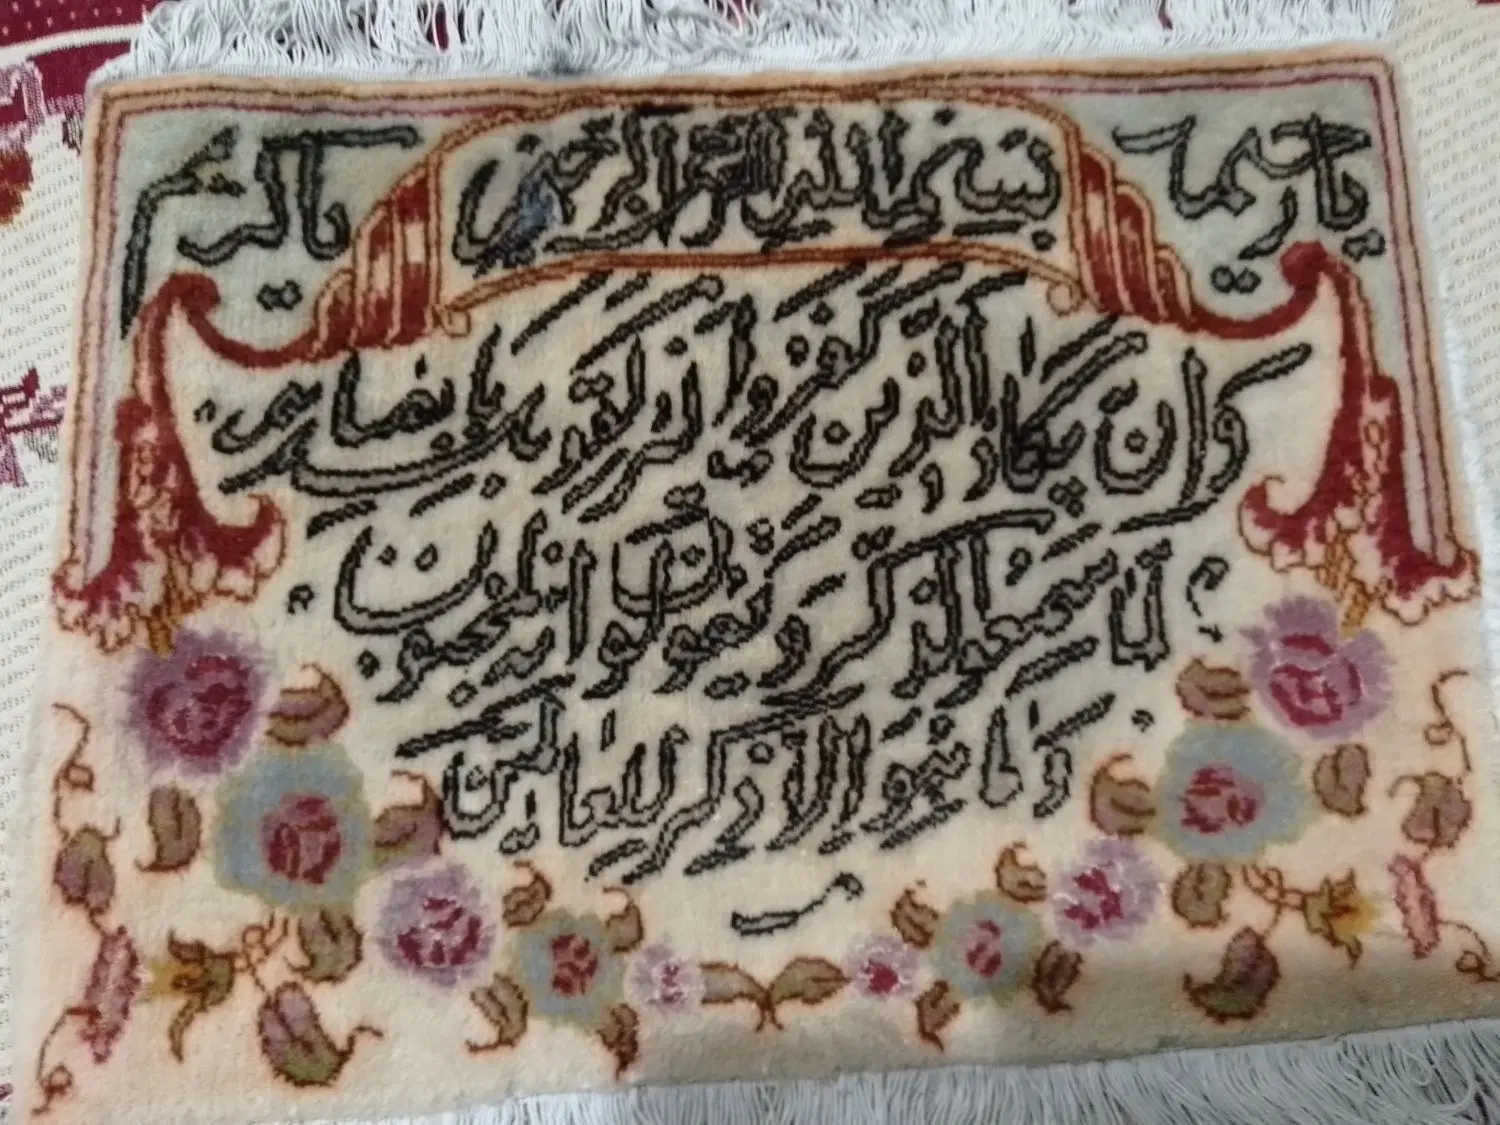 یا رحیم
بسم الله الرحمن الرحیم
یا کریم
وان یکاد الذین کفروا لیزلقونک بابصارهم
لما سمعوا الذکر و یقولون انه لمجنون
و ما هو الا ذکر للعالمین